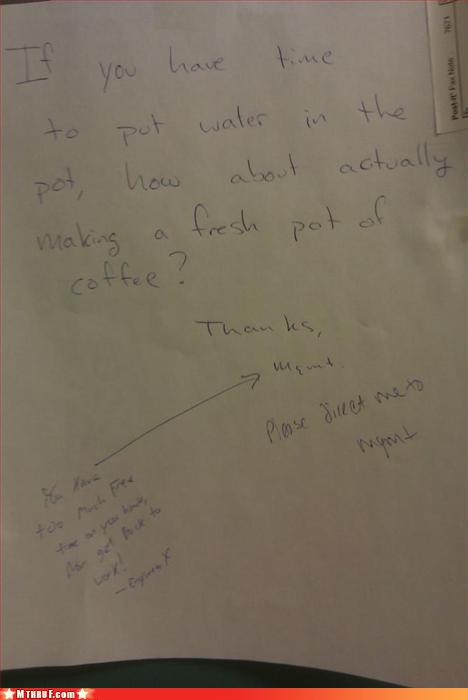 If you have time
to put water in the
pot, how about actually
making a fresh pot of
coffee?
Thanks,
Mgmt.
Please direct me to
mgmt
You have
too much free
time on your hands,
Now get back to
work!
Post-it Fax Note 7671
MTHRUF.com